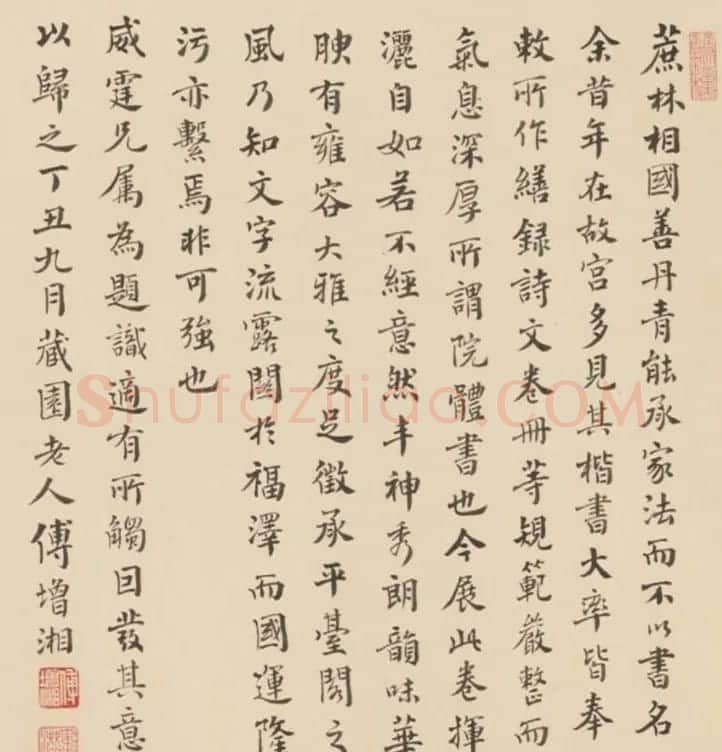 蔗林相國善丹青能承家法而不以書名
余昔年在故宮多見其楷書大率皆奉
敕所作繕録詩文卷冊等規範嚴整而
氣息深厚所謂院體書也今展此卷揮
灑自如若不經意然丰神秀朗韻味華
腴有雍容大雅之度足徵承平臺閣之
風乃知文字流露關於福澤而國運隆
污亦繫焉非可強也
威霆兄属為題識適有所觸因發其意
以歸之丁丑九月藏園老人傅增湘
Shufaziliao.COM